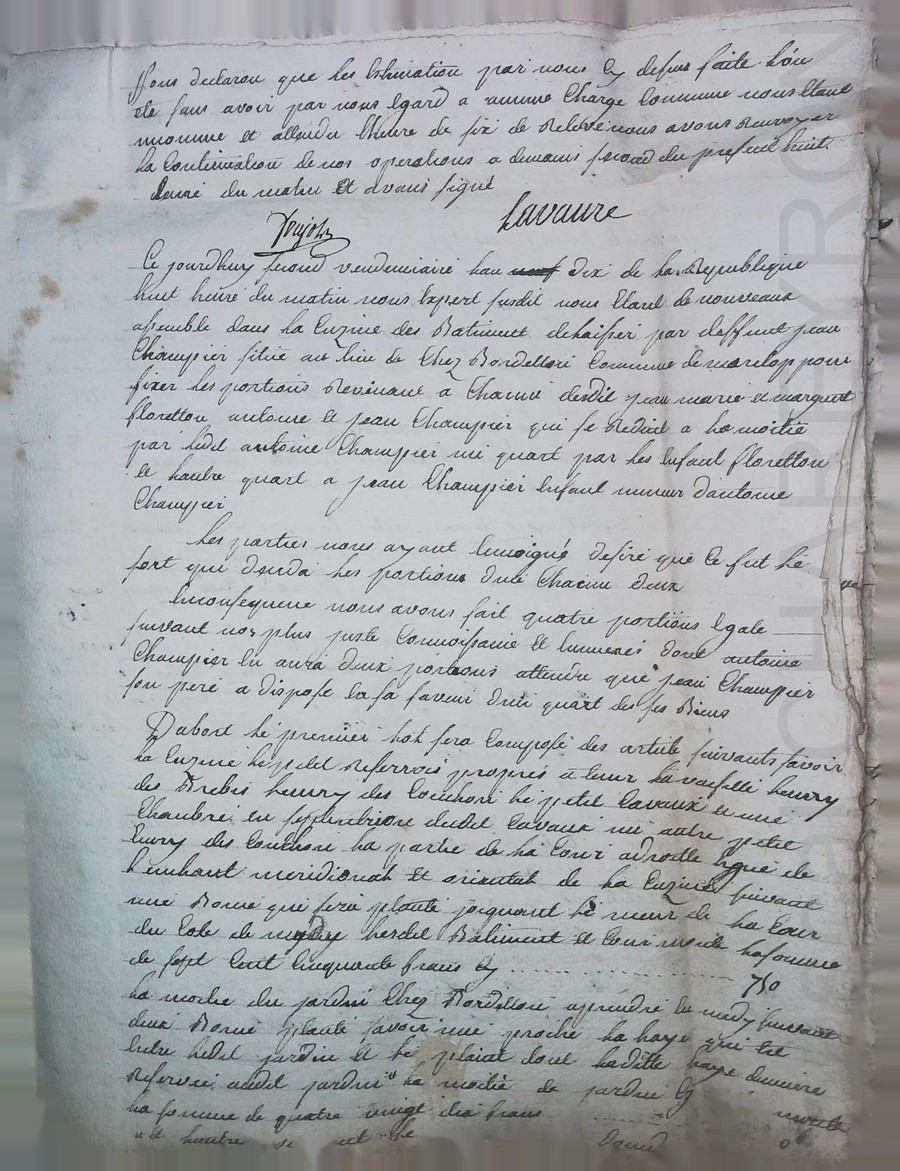 Nous declaron que les Estimation par nous cy desus faite l'on
ete sans avoir par nous Egard a aucune Charge Commune nous Etant
innomme et attendu lheure de six de Relevé nous avons Renvoyer
la Continuation de nos operations a demain second du present huit
heure du matin Et avons signé
Lavaure
Ce jourdhuy second vendemiaire lan dix de la Republique
huit heure du matin nous Expert susdit nous Etant de nouveaux
assemble dans la Cuzine des Batiment delaisser par deffunt jean
Champier situe au lieu de Chez Bordellon Commune de pour
fixer les portions Revenant a Chacun desdit jean marie et margueri
floretton antoine et jean Champier qui se Reduit a la moitie
par ledit antoine Champier un quart par les Enfant floretton
Et lautre quart a jean Champier Enfant mineur dantoine
Champier
Les parties nous ayant temoigné desiré que Ce fut le
sort qui desida les portions dun Chacun deux
Enconsequence nous avons fait quatre portions Egale
suivant nos plus juste Connoissance et lumieres dont antoine
Champier En aura deux portions attendre que jean Champier
son peré a disposé En sa faveur dun quart des ses Biens
Dabort le premier lot sera Composé des article suivants savoir
la Cuzine le petit Reservois proprés a leur la vaiselle heurry
des Brebis heurry des Couchon le petit Cavaux et une
Chambre En septentrion dudit Cavaux un autre petit
Eurry des Couchon la partie de la Cour adroitte ligné de
lenchant meridional et oriental de la Cuzine suivant
une Borne qui sera planté joignant le meur de la Cour
du Cote de lesdit Batiment et Cour monte lasomme
de sept Cent Cinquante frans Cy .......... 750
la moitie du jardin Chez Bordellon aprendre En midy suivant
deux Borne planté savoir une proche la haye qui Est
Entre ledit jardin et le plaint dont laditte haye demeure
Reservée audit jardin la moitie de jardin Cy monte
la somme de quatre vingt dix frans